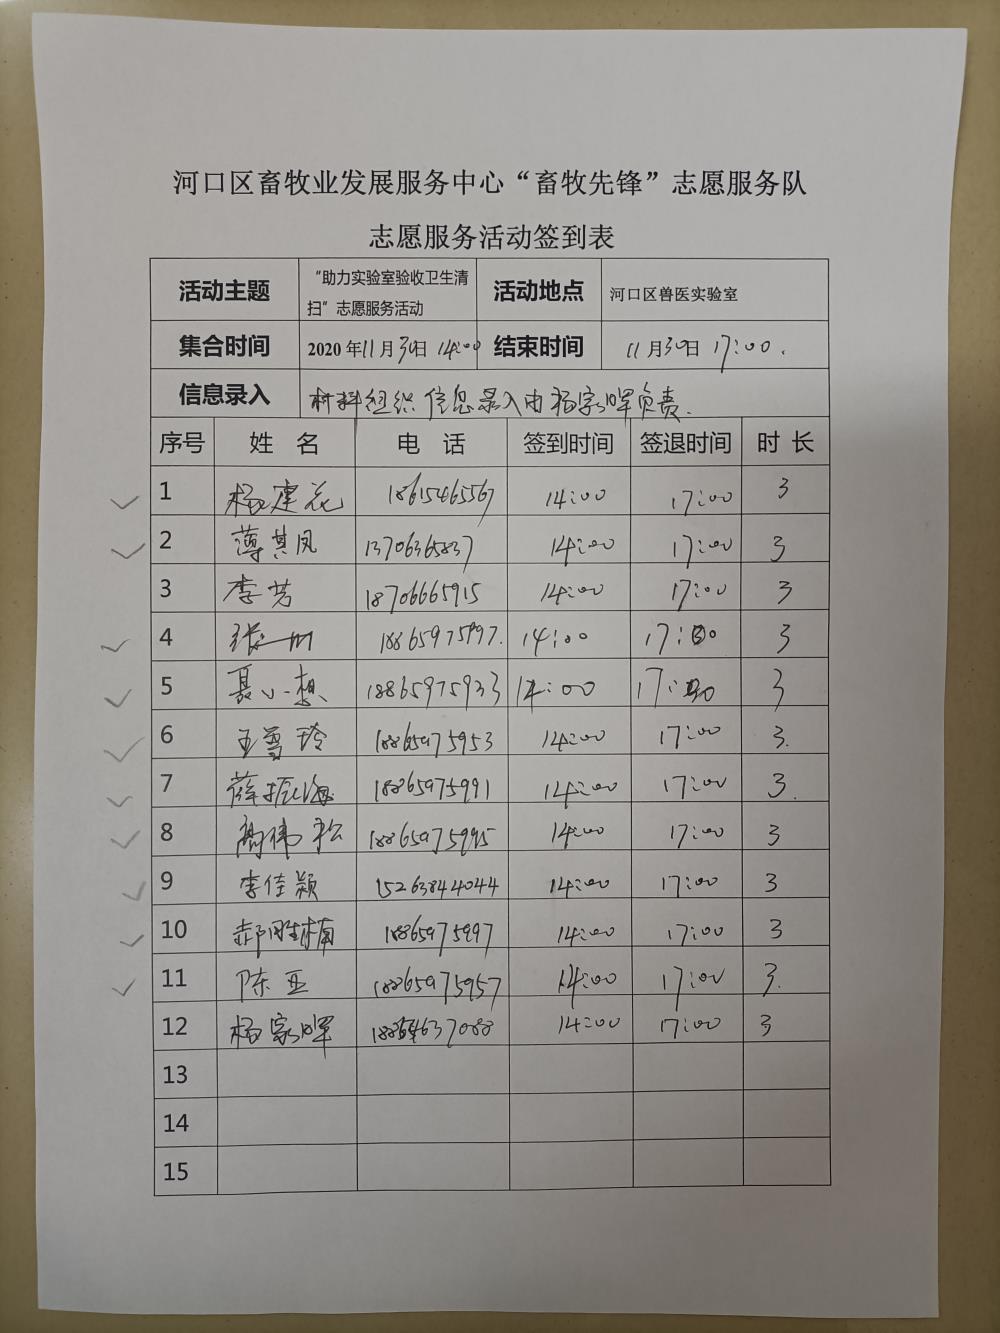 河口区畜牧业发展服务中心“畜牧先锋”志愿服务队
志愿服务活动签到表
活动主题 “助力实验室验收卫生清扫”志愿服务活动 活动地点 河口区兽医实验室
集合时间 2020年11月30日 14:00 结束时间 11月30日 17:00.
信息录入 材料组织信息录入由杨家晖负责.
序号 姓 名 电 话 签到时间 签退时间 时 长
1 杨建花 18615465567 14:00 17:00 3
2 薄其凤 13706365837 14:00 17:00 3
3 李芳 18706665915 14:00 17:00 3
4 张 18865975997. 14:00 17:00 3
5 聂小想 18865975933 14:00 17:00 3
6 王雪玲 18865975953 14:00 17:00 3.
7 薛振海 18865975991 14:00 17:00 3.
8 高伟松 18865975995 14:00 17:00 3
9 李佳颖 15263844044 14:00 17:00 3
10 郝胜楠 18865975997 14:00 17:00 3
11 陈亚 18865975957 14:00 17:00 3.
12 杨家晖 14:00 17:00 3
13
14
15